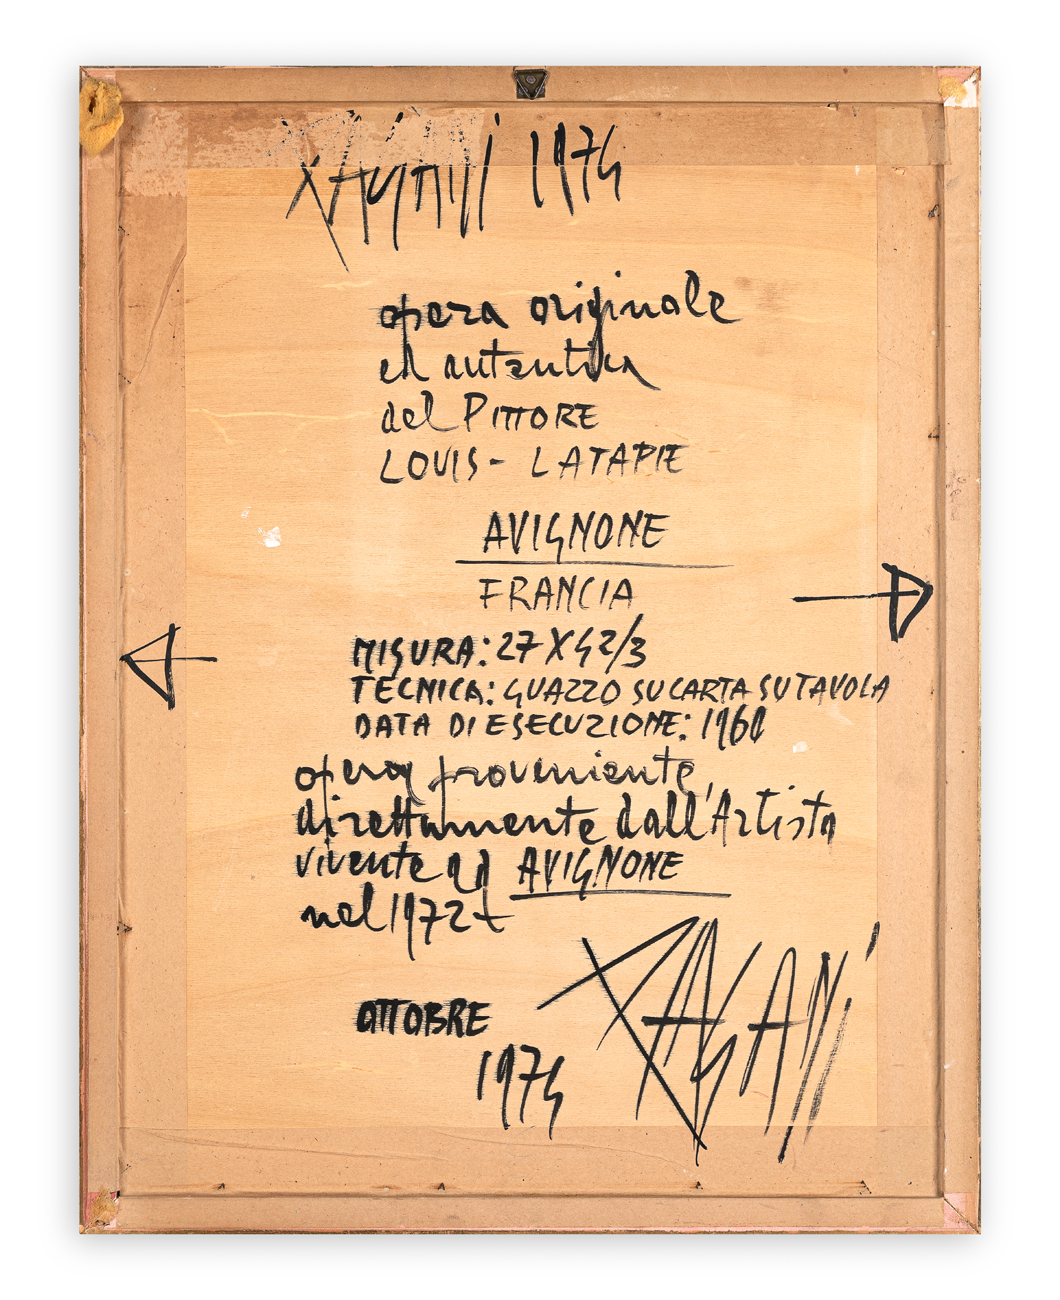 PAGANI 1974
opera originale
ed autentica
del PITTORE
LOUIS - LATAPIE
AVIGNONE
FRANCIA
MISURA: 27 X 42/3
TECNICA: GUAZZO SU CARTA SU TAVOLA
DATA DI ESECUZIONE: 1960
opera proveniente
direttamente dall'Artista
vivente ad AVIGNONE
nel 1972
PAGANI
OTTOBRE
1974